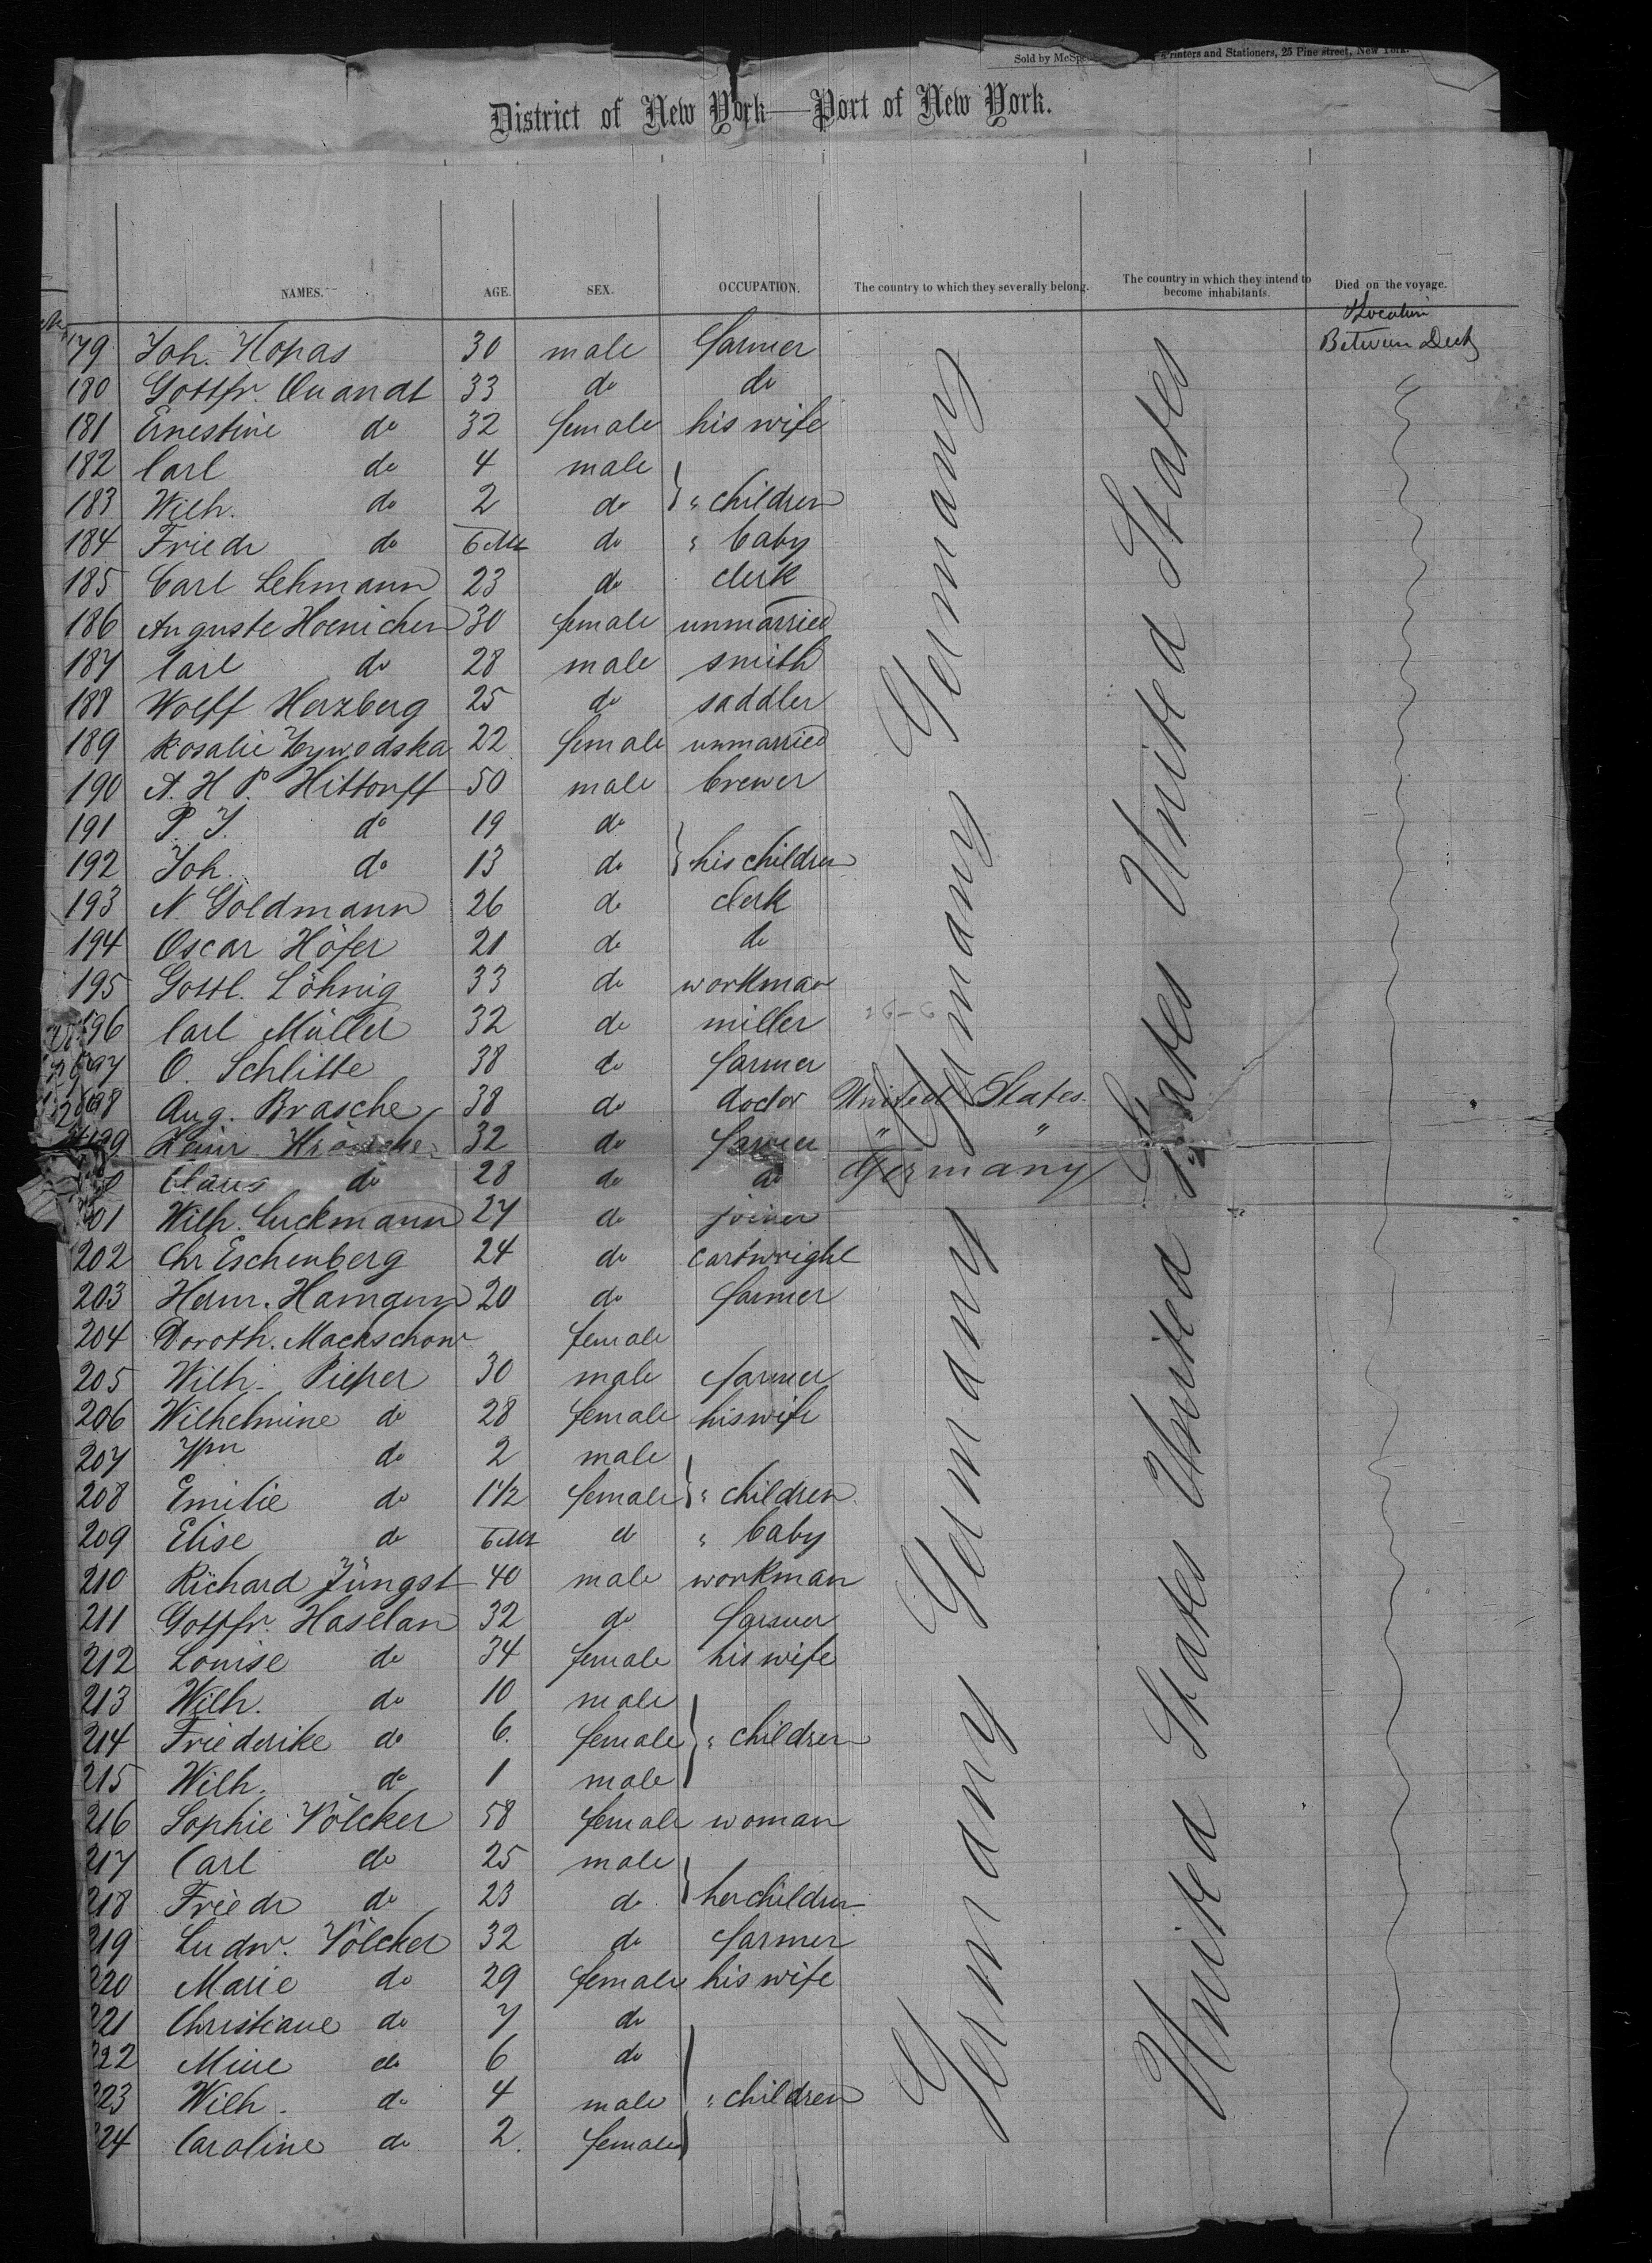 Sold by McSp Printers and Stationers, 25 Pine street, New York.
District of New York—Port of New York.
NAMES. AGE. SEX. OCCUPATION. The country to which they severally belong. The country in which they intend to become inhabitants. Died on the voyage.
Location
179 Joh. Hopas 30 male farmer Between Deck
180 Gottfr. Quandt 33 do do
181 Ernestine do 32 female his wife
182 Carl do 4 male
183 Wilh. do 2 do } " children
184 Friedr do 6 Mt do " baby
185 Carl Lehmann 23 do clerk
186 Auguste Hoenichen 30 female unmarried
187 Carl do 28 male smith
188 Wolff Herzberg 25 do saddler
189 Rosalie Zywodska 22 female unmarried
190 A. H P. Hittorff 50 male brewer
191 P. J. do 19 do
192 Joh. do 13 do } his children
193 N Goldmann 26 do clerk
194 Oscar Höfer 21 do do
195 Gottl. Löhnig 33 do workman
196 Carl Müller 32 do miller
197 O. Schlitte 38 do farmer
198 Aug. Brasche 38 do doctor United States
199 Heinr. 32 do farmer " "
Claus do 28 do do Germany
201 Wilh. Luckmann 27 do joiner
202 Chr Eschenberg 24 do cartwright
203 Herm. 20 do farmer
204 Doroth. Mackschow female
205 Wilh. Pieper 30 male farmer
206 Wilhelmine do 28 female his wife
207 Wm do 2 male
208 Emilie do 1 1/2 female } " children
209 Elise do 6 Mt do " baby
210 Richard Jüngst 40 male workman
211 Gottfr. Haselan 32 do farmer
212 Louise do 34 female his wife
213 Wilh. do 10 male
214 Friederike do 6. female } " children
215 Wilh. do 1 male
216 Sophie Völcker 58 female woman
217 Carl do 25 male
218 Friedr do 23 do } her children
219 Ludw. Völcker 32 do farmer
220 Marie do 29 female his wife
221 Christiane do 7 do
222 Mine do 6 do
223 Wilh. do 4 male } " children
224 Caroline do 2. female
Germany Germany Germany Germany Germany
United States United States United States United States